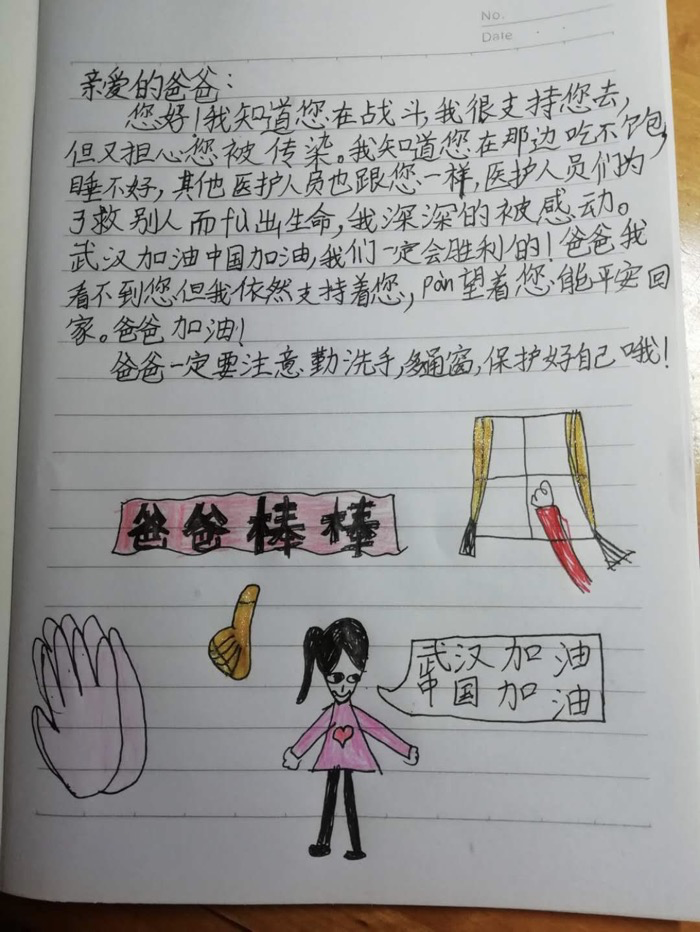 No.
Date
亲爱的爸爸：
您好！我知道您在战斗,我很支持您去,
但又担心您被传染。我知道您在那边吃不饱,
睡不好,其他医护人员也跟您一样,医护人员们为
了救别人而fu出生命,我深深的被感动。
武汉加油中国加油,我们一定会胜利的！爸爸我
看不到您但我依然支持着您,pàn望着您能平安回
家。爸爸加油！
爸爸一定要注意勤洗手,多通窗,保护好自己哦！
爸爸棒棒
武汉加油
中国加油